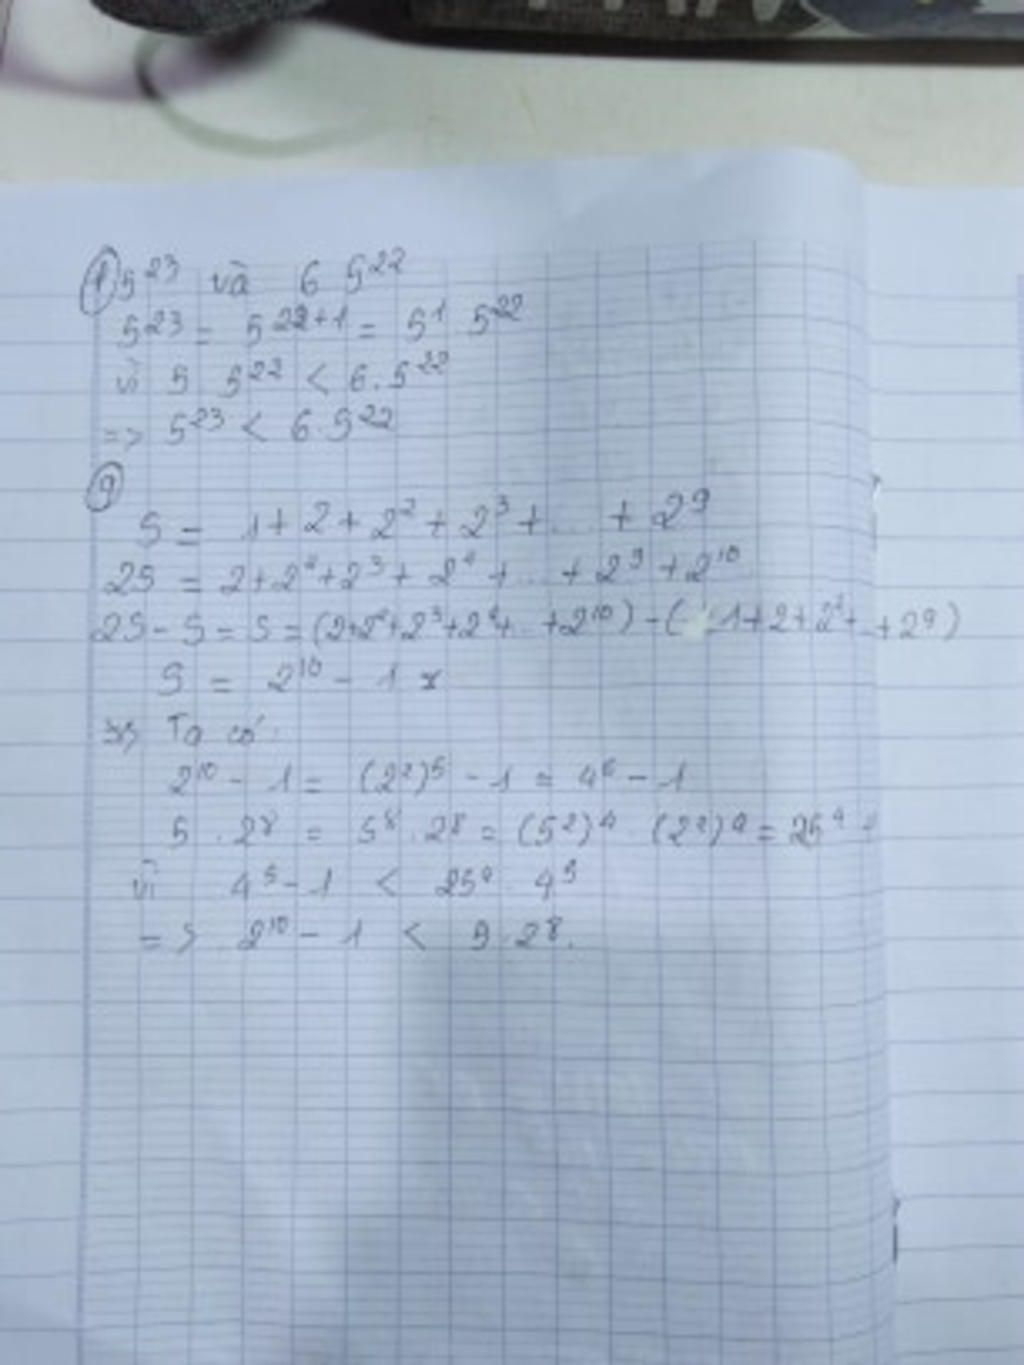 ① 5²³ và 6 5²²
5²³ = 5²²⁺¹ = 5¹ 5²²
vì 5 5²² < 6.5²²
=> 5²³ < 6.5²²
⑨
S = 1 + 2 + 2² + 2³ + ... + 2⁹
2S = 2 + 2² + 2³ + 2⁴ + ... + 2⁹ + 2¹⁰
2S - S = S = (2+2²+2³+2⁴+...+2¹⁰) - (1+2+2²+...+2⁹)
S = 2¹⁰ - 1
Ta có:
2¹⁰ - 1 = (2²)⁵ - 1 = 4⁵ - 1
5 . 2⁸ = 5⁸ . 2⁸ = (5²)⁴ (2²)⁴ = 25⁴
vì 4⁵ - 1 < 25⁴ 4⁵
=> 2¹⁰ - 1 < 5.2⁸.